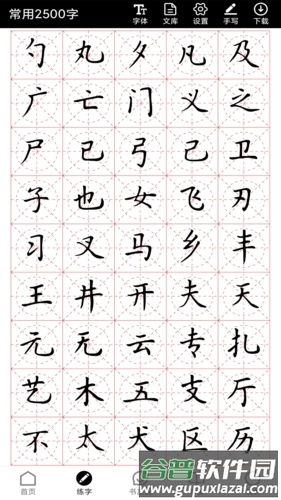 常用2500字
字体 文库 设置 手写 下载
勺丸夕凡及
广亡门义之
尸已弓己卫
子也女飞刃
习叉马乡丰
王井开夫天
元无云专扎
艺木五支厅
不太犬区历
首页 练字
谷普软件园
www.gupuxlazai.com